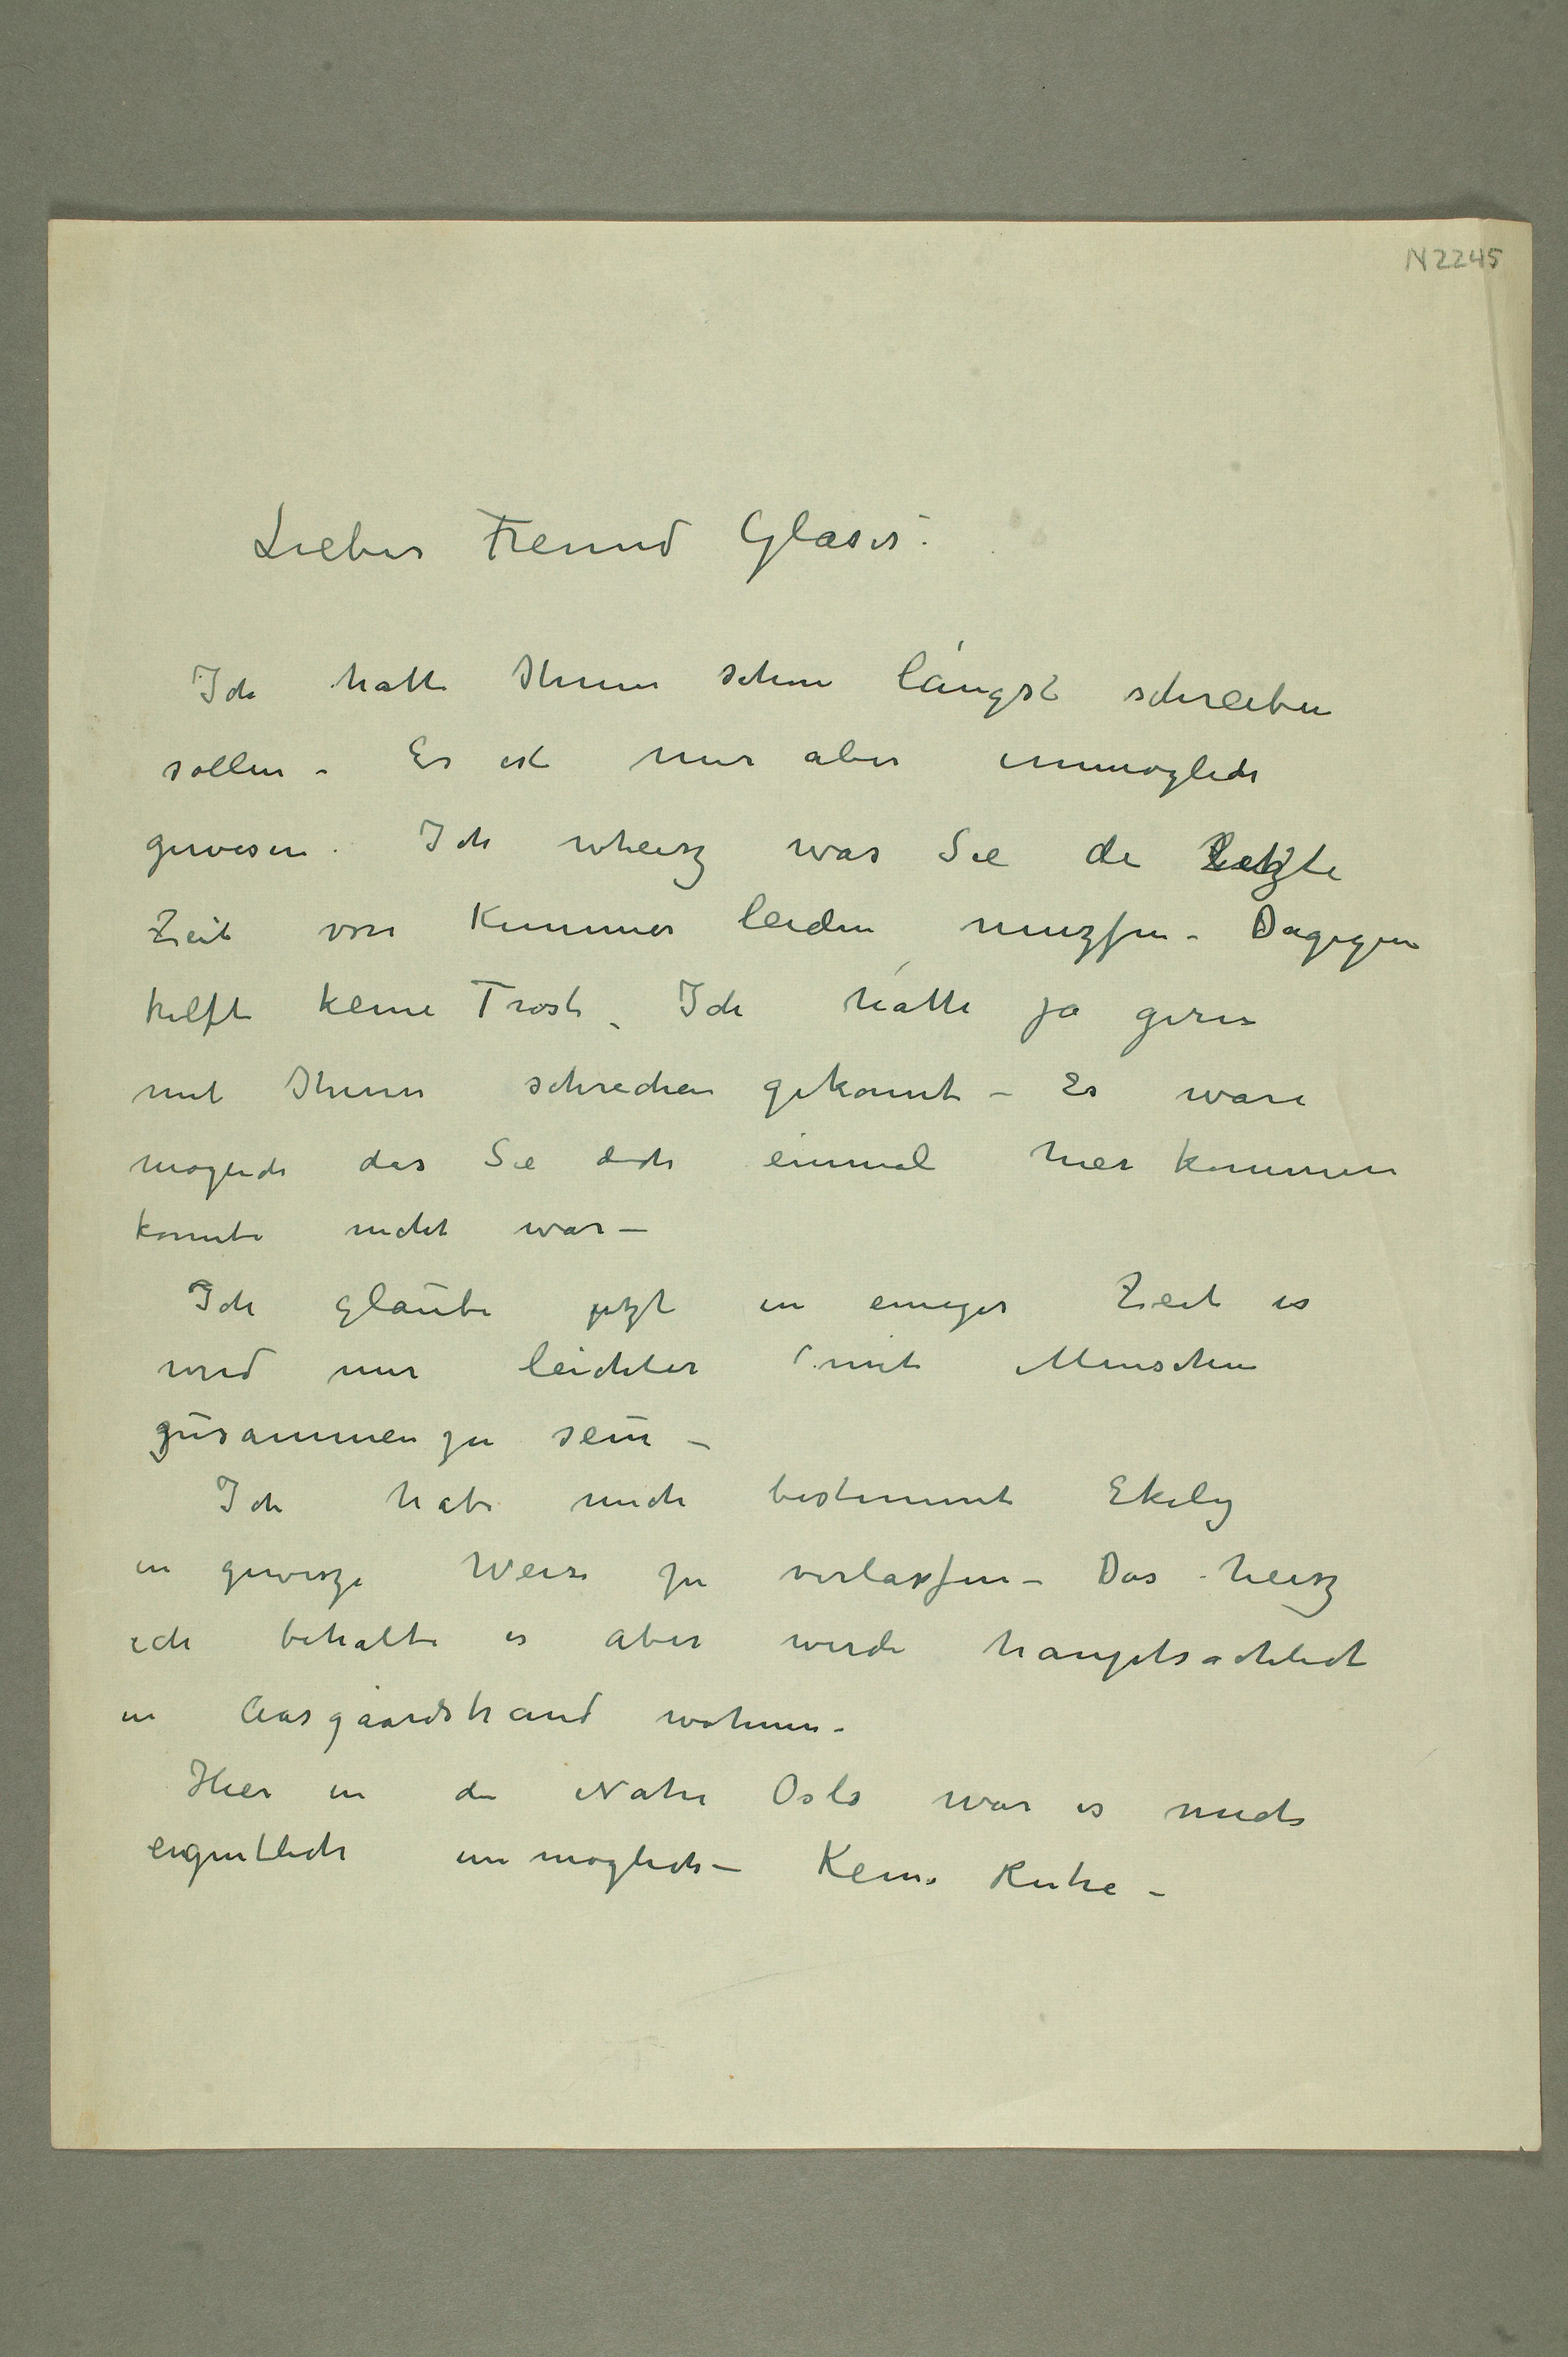 N 2245
Lieber Freund Glaser!
Ich hatte Ihnen schon längst schreiben
sollen – Es ist mir aber unmöglich
gewesen. Ich wheisz was Sie de letzte
Zeit von Kummer leiden muszſen – Dagegen
hilft keine Trost. Ich hätte ja gerne
mit Ihnen schrechen gekonnt – Es ware
moglich das Sie doch einmal hier kommen
konnte nicht war –
Ich glaube jetzt in einiger Zieit es
wird mir leichter mit Menschen
zusammen zu sein –
Ich habe mich bestimmt Ekely
in gewisze Weise zu verlasſen – Das heisz
ich behalte es aber werde hauptsachlich
in Aasgaardstrand wohnen –
Hier in de Nahe Oslo war es mich
eigentlich unmoglich – Keine Ruhe –